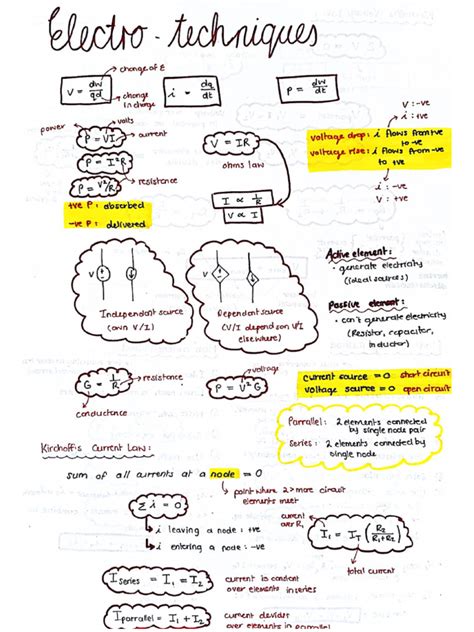 Electro-techniques
change of E
V = dw/qd
change in charge
i = dq/dt
P = dw/dt
power
volts
P = VI
current
P = I²R
P = V²/R
resistance
+ve P: absorbed
-ve P: delivered
V = IR
ohms law
I ∝ 1/R
V ∝ I
V: -ve
i: +ve
voltage drop: i flows from +ve to -ve
voltage rise: i flows from -ve to +ve
i: -ve
V: +ve
V
Independant source
(own V/I)
V
Dependant source
(V/I depend on V/I
elsewhere)
Active element:
- generate electricity
(ideal sources)
Passive element:
- can't generate electricity
(Resistor, capacitor,
inductor)
G = 1/R
resistance
conductance
voltage
P = V²G
current source = 0 short circuit
voltage source = 0 open circuit
Parrallel: 2 elements connected
by single node pair
Series: 2 elements connected by
single node
Kirchoff's Current Law:
sum of all currents at a node = 0
point where 2> more circuit
elements meet
Σ i = 0
i leaving a node: +ve
i entering a node: -ve
current
over R₁
I₁ = I_T (R₂/R₁+R₂)
total current
I series = I₁ = I₂
current is constant
over elements in series
I parrallel = I₁ + I₂
current divides
over elements in parrallel